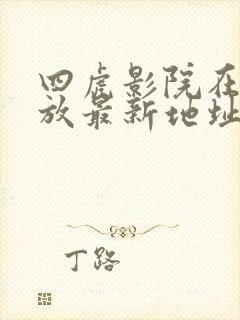 四虎影院在
放最新地址
丁路